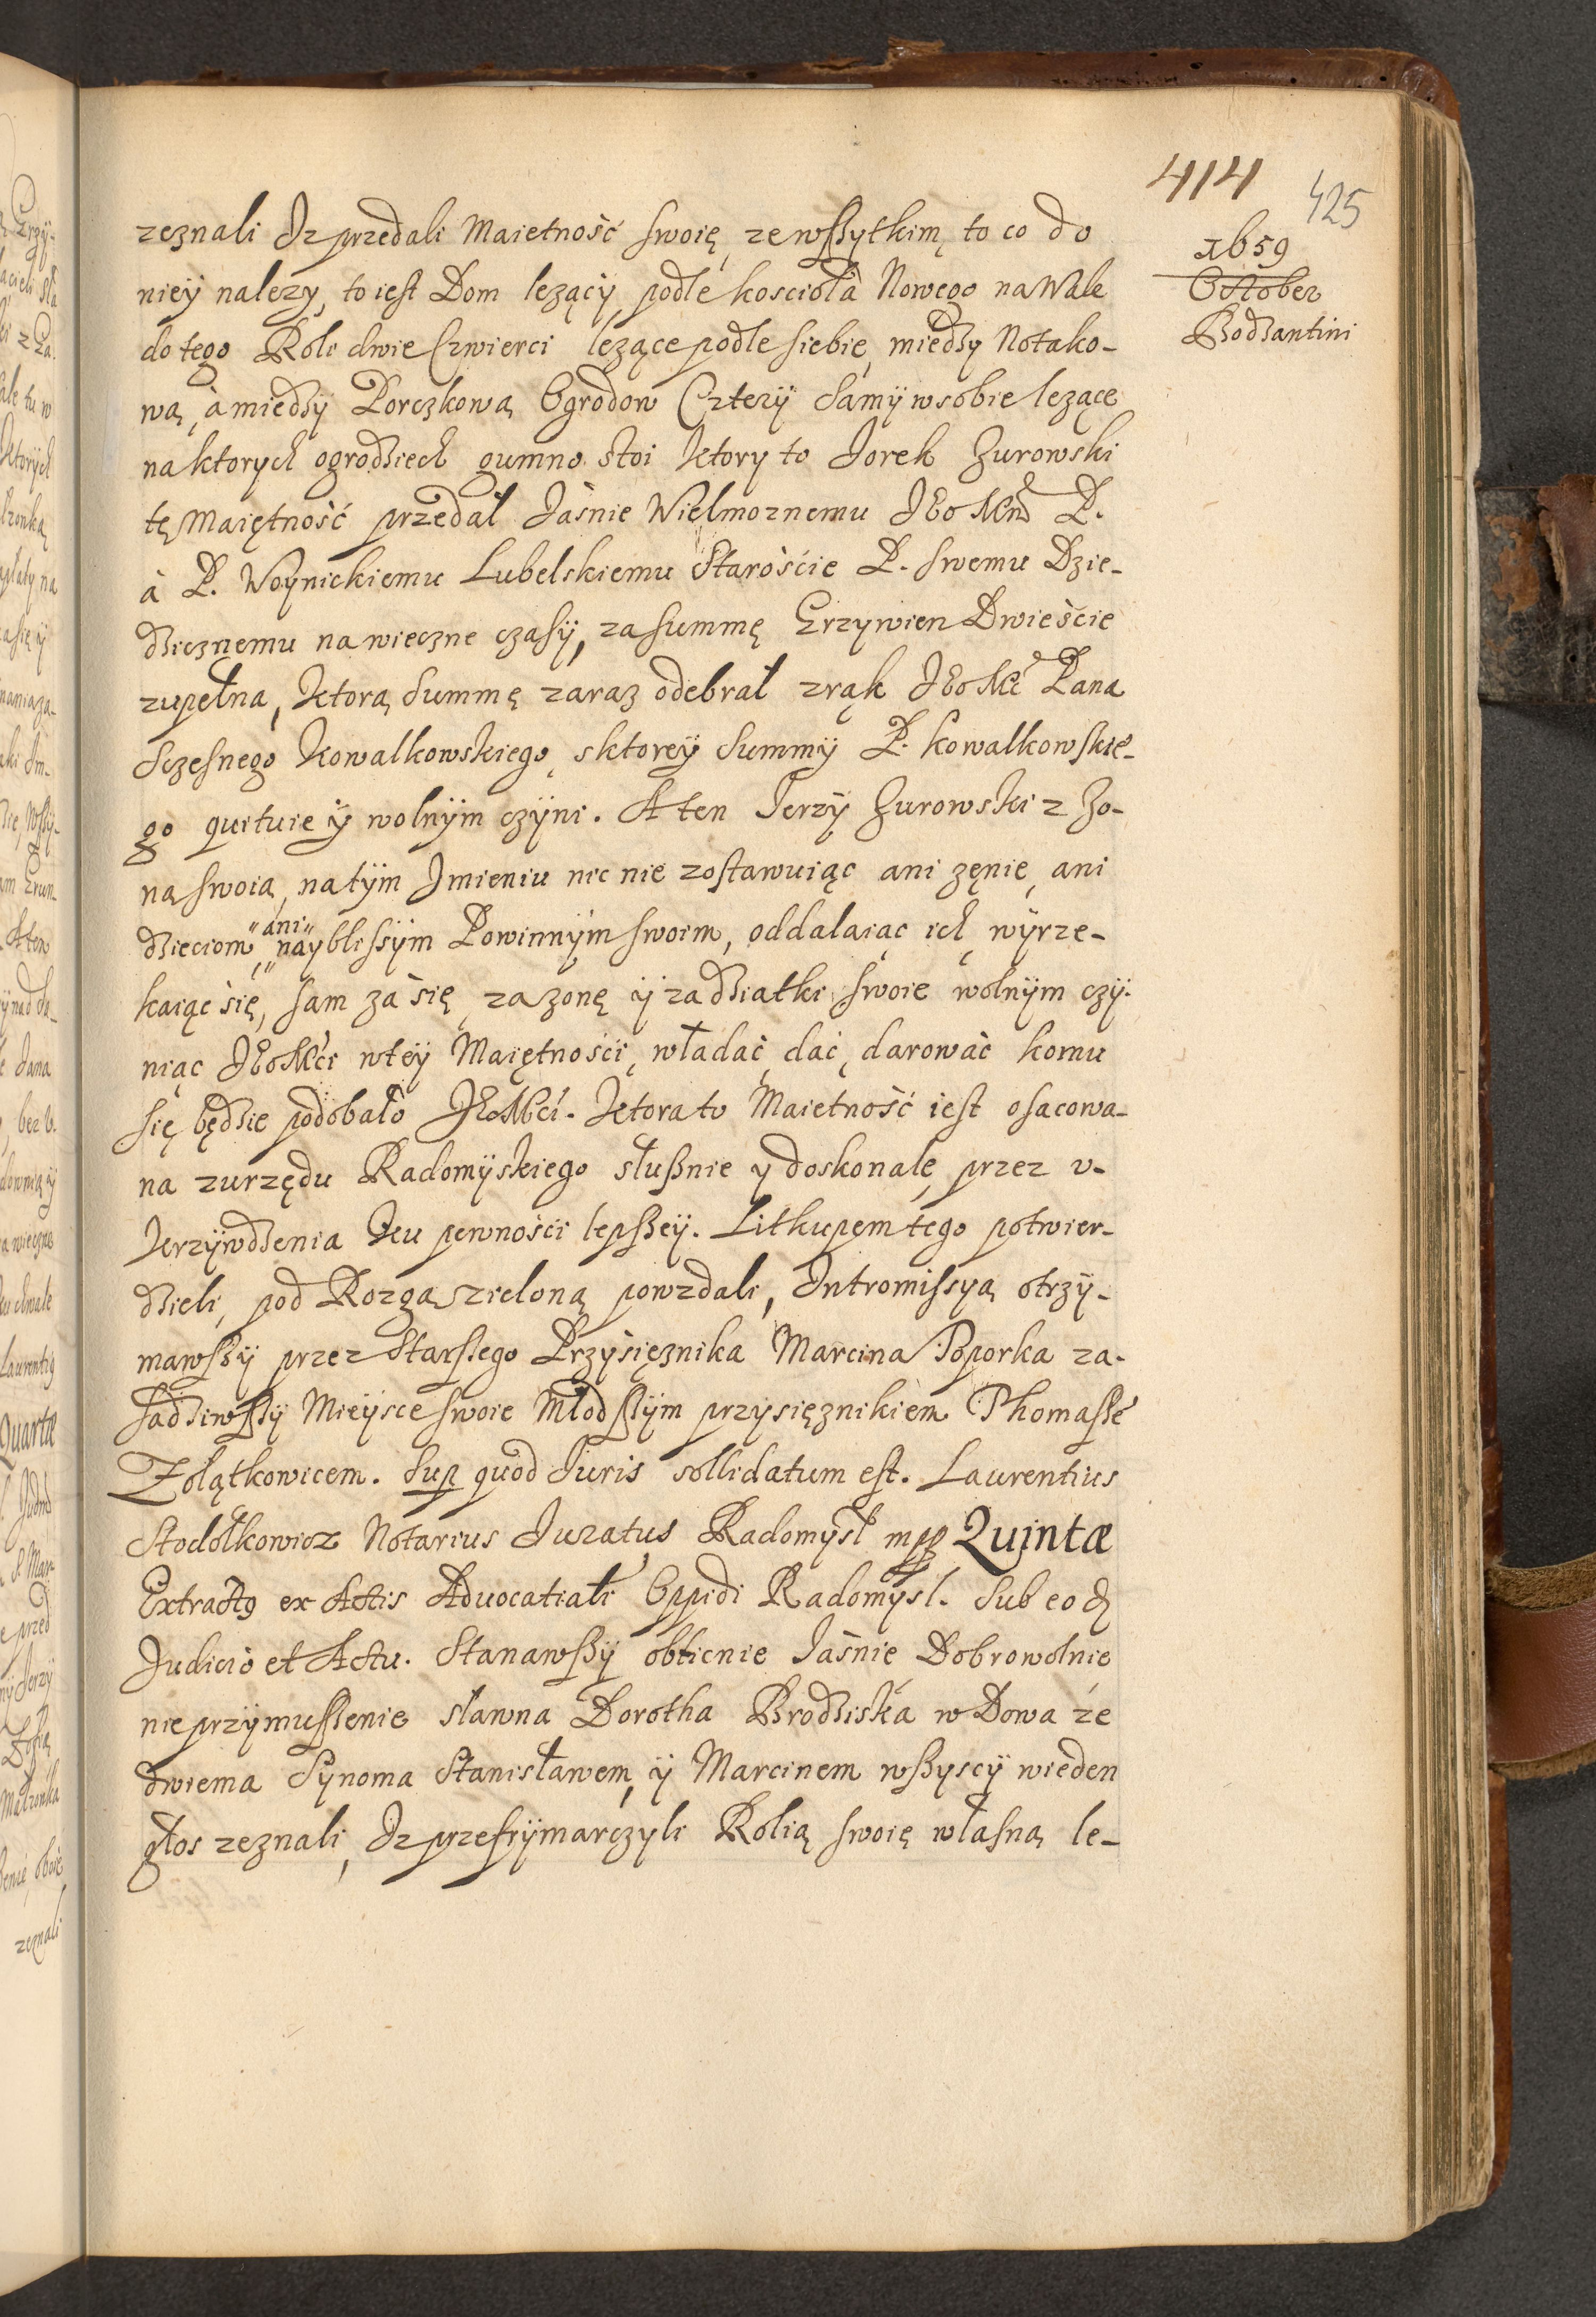 414
425
1659
October
Bodzantini
zeznali Iz przedali Maietność swoię, ze wszytkim, to co do
niey nalezy, to iest Dom lezący podle kosciołà Nowego na Wale
do tego Roli dwie Czwierci lezące podle siebie, miedzy Notako-
wą, à miedzy Porczkową Ogrodow Cztery samy w sobie lezące
na ktorych ogrodziech gumno stoi ktory to Jorek Zurowski
tę Maiętność przedał Jaśnie Wielmoznemu JEo Mnd P.
à P. Woynickiemu Lubelskiemu Staroście P. swemu Dzie-
dzicznemu na wieczne czasy, za summę Grzywien Dwieście
zupełna, ktorą Summę zaraz odebrał z rąk JEo Mci Pana
Sczesnego Kowalkowskiego, s ktorey Summy P. Kowalkowskie-
go quituie y wolnym czyni. A ten Jerzy Zurowski z Zo-
ną swoią, na tym Imieniu nic nie zostawuiąc ani zęnie, ani
dzieciom, "ani" nayblissym Powinnym swoim, oddalaiąc ich, wyrze-
kaiąc się, sam za się, za zonę y za dziatki swoie wolnym czy-
niąc JEoMci w tey Maiętności, władać, dać, darować komu
się będzie podobało JEoMci. Ktora to Maietność iest osacowa-
na z urzędu Radomyskiego słusznie y doskonale, przez u-
krzywdzenia ku pewności lepszey. Litkupem tego potwier-
dzieli, pod Rozgą zieloną powzdali, Intromissyą otrzy-
mawszy przez Starssego Przysięznika Marcina Poporka za-
sadziwszy Mieysce swoie Młodszym przysięznikiem Thomasse
Zołątkowicem. Sup quod Juris sollidatum est. Laurentius
Stodołkowicz Notarius Juratus Radomysl mpp Quintæ
Extractg ex Actis Aduocatiali Oppidi Radomysl. Sub eo dz
Judicio et Actu. Stanawszy oblicnie Jaśnie Dobrowolnie
nie przymuszenie sławna Dorotha Brodziska w Dowa ze
dwiema Synoma Stanisławem, y Marcinem wszyscy w ieden
głos zeznali, Iz przefrymarczyli Rolią swoię własną le-